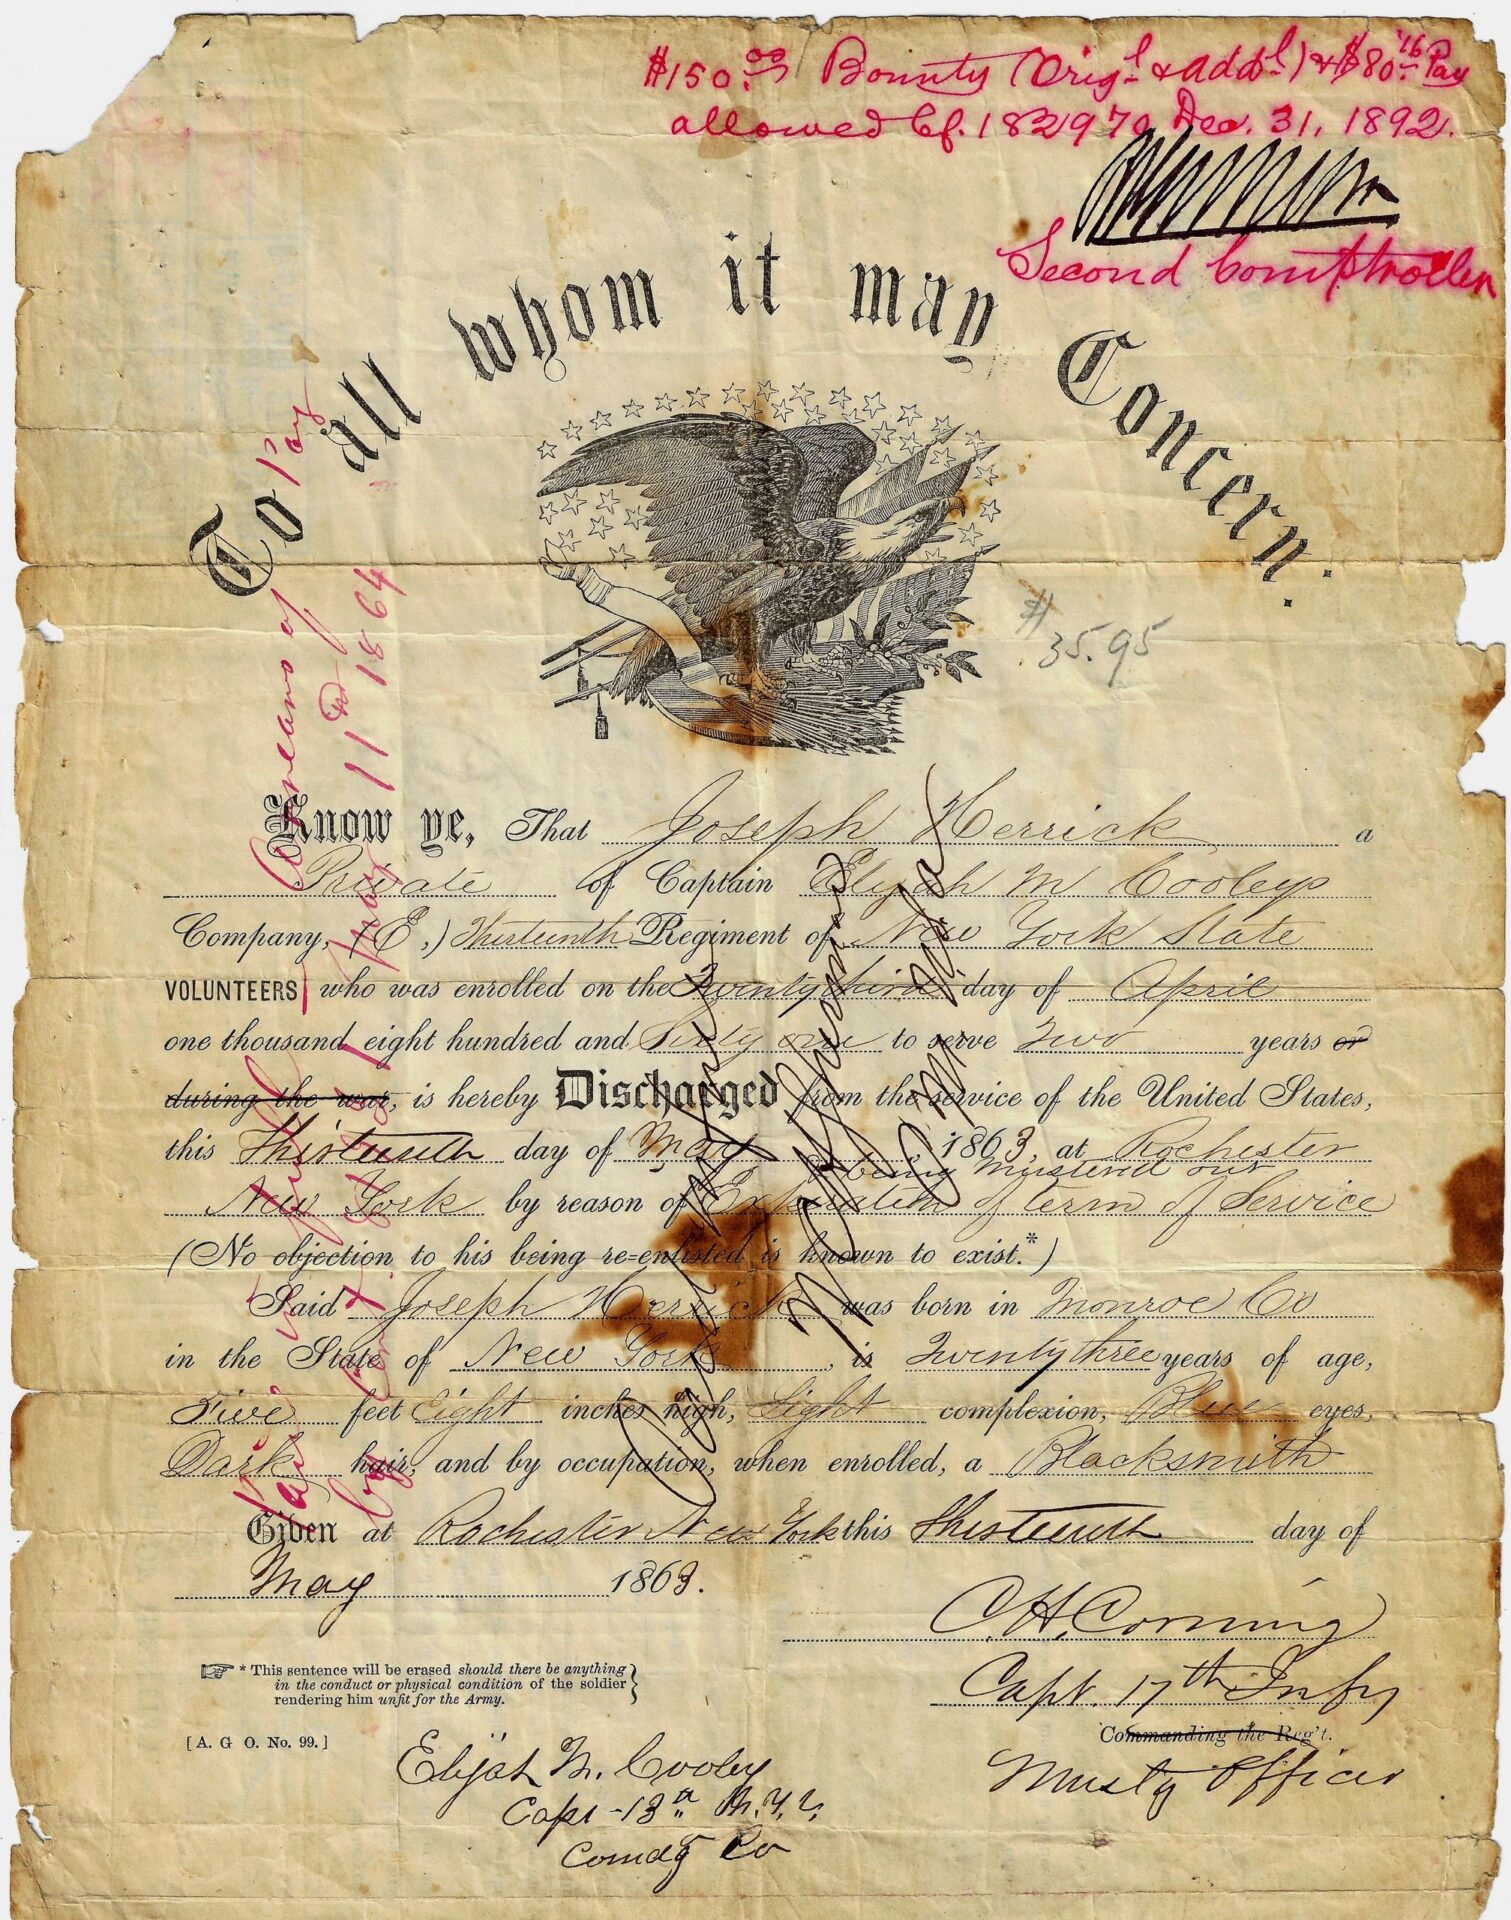 $150.00 Bounty (Orig.l & Add.l) & $80.16 Pay
allowed Cf. 182970 Dec. 31, 1892.
Second Comptroller
To all whom it may Concern.
$35.95
Know ye, That Joseph Herrick a
Private of Captain Elijah M Cooleys
Company, (E,) Thirteenth Regiment of New York State
VOLUNTEERS, who was enrolled on the Twenty third day of April
one thousand eight hundred and Sixty one to serve Two years or
during the war, is hereby Discharged from the service of the United States,
this Thirteenth day of May 1863, at Rochester
being mustered out
New York by reason of Expiration of term of Service
(No objection to his being re=enlisted is known to exist.*)
Said Joseph Herrick was born in Monroe Co
in the State of New York, is Twenty three years of age,
Five feet Eight inches high, Light complexion, Blue eyes,
Dark hair, and by occupation, when enrolled, a Blacksmith
Given at Rochester New York this Thirteenth day of
May 1863.
C. H. Corning
Capt. 17th Infy
Commanding the Reg't.
Mustg Officer
* This sentence will be erased should there be anything
in the conduct or physical condition of the soldier
rendering him unfit for the Army.
[A. G O. No. 99.]
Elijah M. Cooley
Capt - 13th N.Y.V.
Comdg Co
Paid in full
Arrears of Pay
1864